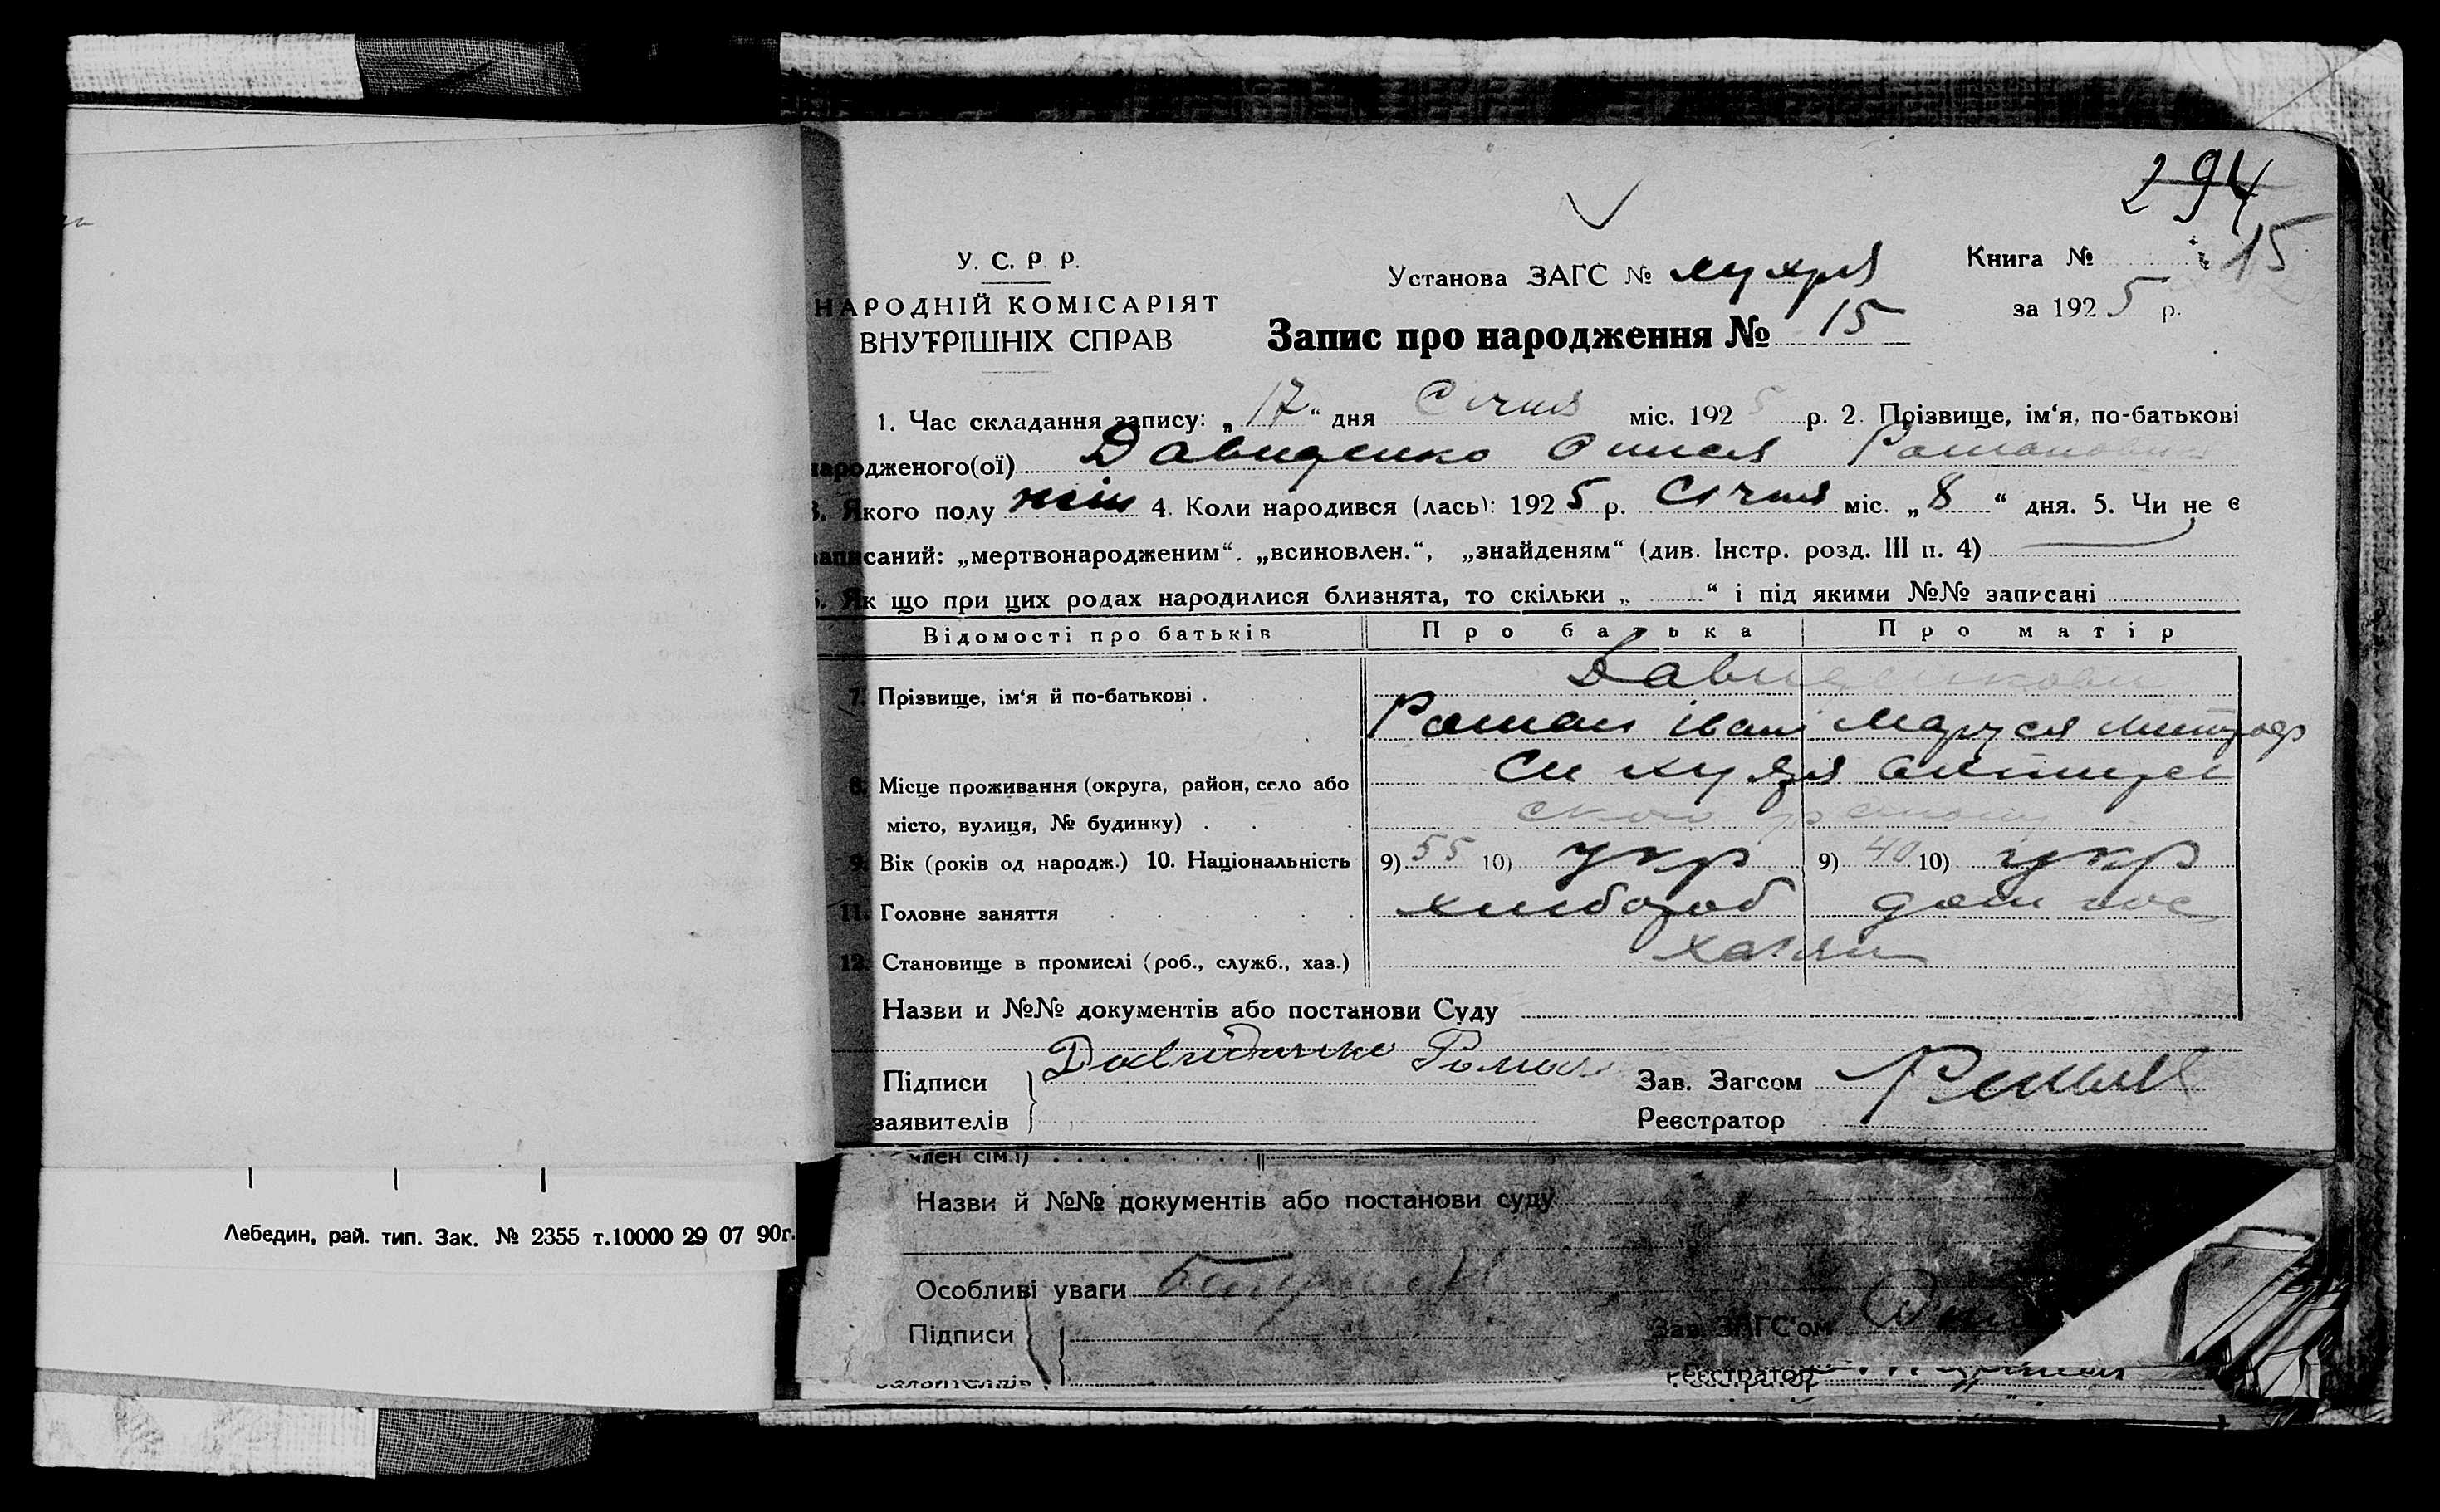 294
15
У. С. Р. Р.
НАРОДНІЙ КОМІСАРІЯТ
ВНУТРІШНІХ СПРАВ
Установа ЗАГС №
Книга №
за 1925 р.
Запис про народження № 15
1. Час складання запису: „17“ дня Січня міс. 1925 р. 2. Прізвище, ім‘я, по-батькові
народженого(ої) Давиденко Романовна
3. Якого полу жін 4. Коли народився (лась): 1925 р. Січня міс. „8“ дня. 5. Чи не є
записаний: „мертвонародженим“. „всиновлен.“, „знайденям“ (див. Інстр. розд. III п. 4)
6. Як що при цих родах народилися близнята, то скільки „ “ і під якими №№ записані
Відомості про батьків Про батька Про матір
7. Прізвище, ім‘я й по-батькові . Давиденкови
Роман Іван Маруся
8. Місце проживання (округа, район, село або
місто, вулиця, № будинку) . .
9. Вік (років од народж.) 10. Національність 9) 55 10) укр 9) 40 10) укр
11. Головне заняття хлибороб дом гос
12. Становище в промислі (роб., служб., хаз.) хазяи
Назви и №№ документів або постанови Суду
Підписи Давиденко Роман Зав. Загсом
заявителів Реєстратор
член сім.ї)
Назви й №№ документів або постанови суду
Особливі уваги
Підписи Зав. ЗАГС‘ом
Реєстратор
Лебедин, рай. тип. Зак. № 2355 т.10000 29 07 90г.